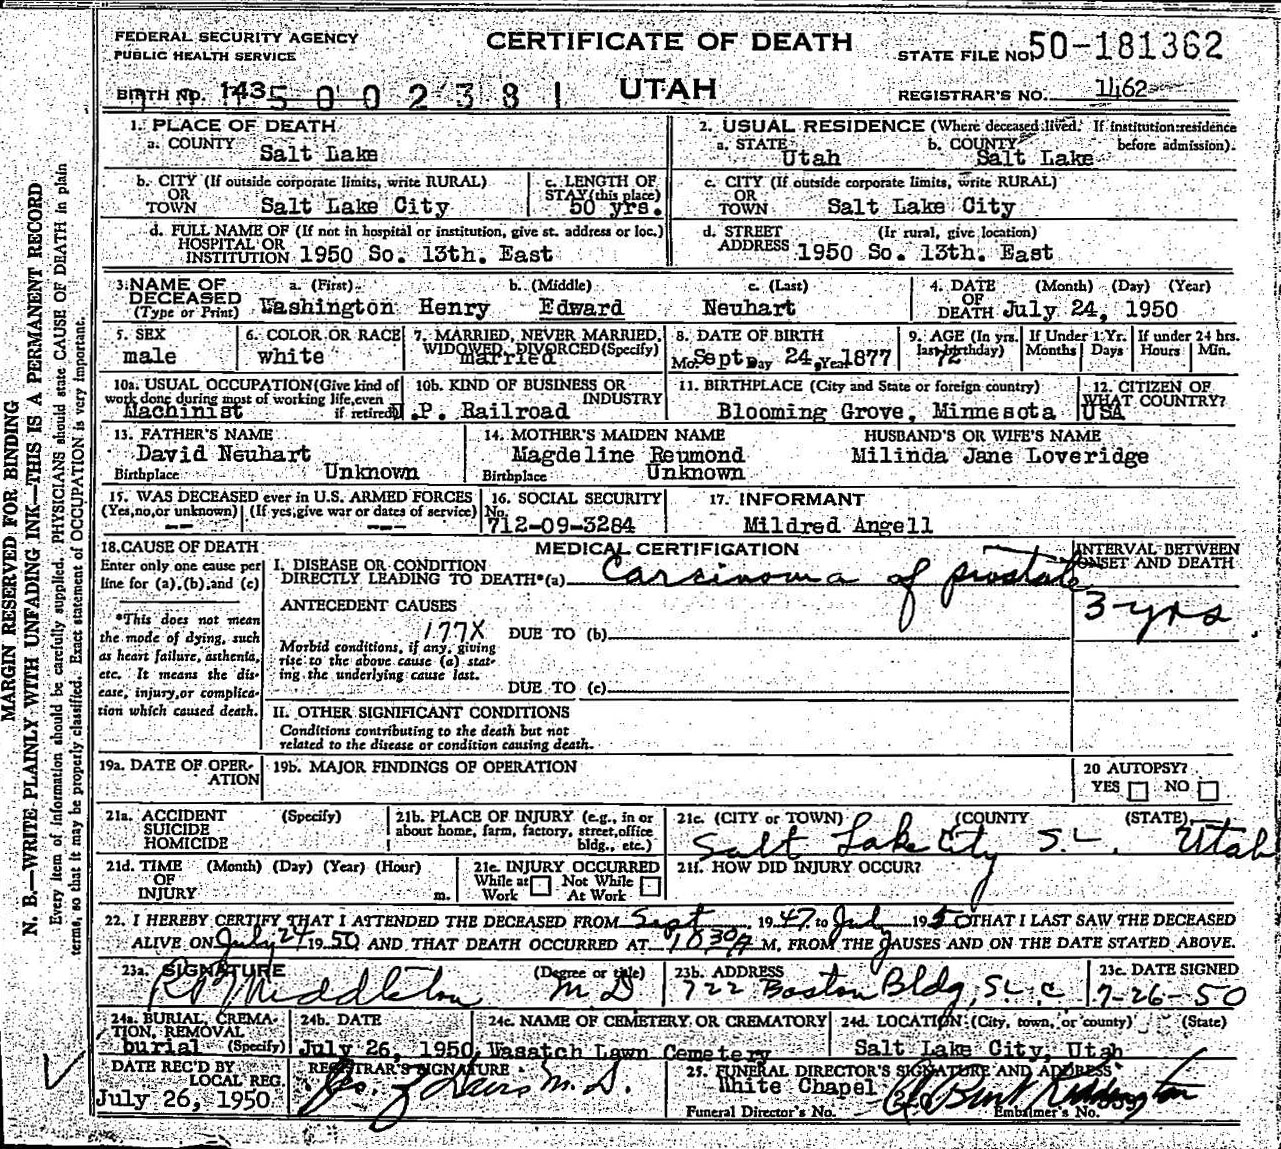 FEDERAL SECURITY AGENCY
PUBLIC HEALTH SERVICE
CERTIFICATE OF DEATH
STATE FILE NO. 50-181362
BIRTH NO. 143
500 0 2 3 8 1
UTAH
REGISTRAR'S NO. 1462
1. PLACE OF DEATH
a. COUNTY Salt Lake
2. USUAL RESIDENCE (Where deceased lived. If institution: residence before admission).
a. STATE Utah b. COUNTY Salt Lake
b. CITY (If outside corporate limits, write RURAL) OR TOWN Salt Lake City
c. LENGTH OF STAY (this place) 50 yrs.
c. CITY (If outside corporate limits, write RURAL) OR TOWN Salt Lake City
d. FULL NAME OF (If not in hospital or institution, give st. address or loc.) HOSPITAL OR INSTITUTION 1950 So. 13th. East
d. STREET ADDRESS (If rural, give location) 1950 So. 13th. East
3. NAME OF DECEASED (Type or Print) a. (First) b. (Middle) c. (Last)
Washington Henry Edward Neuhart
4. DATE OF DEATH (Month) (Day) (Year) July 24, 1950
5. SEX male
6. COLOR OR RACE white
7. MARRIED, NEVER MARRIED, WIDOWED, DIVORCED (Specify) married
8. DATE OF BIRTH Mo. Sept Day 24, Year 1877
9. AGE (In yrs. last birthday) 72
If Under 1 Yr. Months Days
If under 24 hrs. Hours Min.
10a. USUAL OCCUPATION (Give kind of work done during most of working life, even if retired) Machinist
10b. KIND OF BUSINESS OR INDUSTRY U.P. Railroad
11. BIRTHPLACE (City and State or foreign country) Blooming Grove, Minnesota
12. CITIZEN OF WHAT COUNTRY? USA
13. FATHER'S NAME David Neuhart
Birthplace Unknown
14. MOTHER'S MAIDEN NAME Magdeline Reumond
Birthplace Unknown
HUSBAND'S OR WIFE'S NAME Milinda Jane Loveridge
15. WAS DECEASED ever in U.S. ARMED FORCES
(Yes, no, or unknown) (If yes, give war or dates of service)
-- ---
16. SOCIAL SECURITY No. 712-09-3284
17. INFORMANT Mildred Angell
18. CAUSE OF DEATH
Enter only one cause per line for (a), (b), and (c)
*This does not mean the mode of dying, such as heart failure, asthenia, etc. It means the disease, injury, or complication which caused death.
MEDICAL CERTIFICATION
I. DISEASE OR CONDITION DIRECTLY LEADING TO DEATH* (a) Carsinoma of prostate
INTERVAL BETWEEN ONSET AND DEATH
3 yrs
ANTECEDENT CAUSES
177X
Morbid conditions, if any, giving rise to the above cause (a) stating the underlying cause last.
DUE TO (b)
DUE TO (c)
II. OTHER SIGNIFICANT CONDITIONS
Conditions contributing to the death but not related to the disease or condition causing death.
19a. DATE OF OPERATION
19b. MAJOR FINDINGS OF OPERATION
20 AUTOPSY?
YES NO
21a. ACCIDENT SUICIDE HOMICIDE (Specify)
21b. PLACE OF INJURY (e.g., in or about home, farm, factory, street, office bldg., etc.)
21c. (CITY or TOWN) (COUNTY (STATE)
Salt Lake City S.L. Utah
21d. TIME OF INJURY (Month) (Day) (Year) (Hour) m.
21e. INJURY OCCURRED
While at Work Not While At Work
21f. HOW DID INJURY OCCUR?
22. I HEREBY CERTIFY THAT I ATTENDED THE DECEASED FROM Sept 1947 to July 1950 THAT I LAST SAW THE DECEASED
ALIVE ON July 24 1950 AND THAT DEATH OCCURRED AT 10 30 A M, FROM THE CAUSES AND ON THE DATE STATED ABOVE.
23a. SIGNATURE (Degree or title)
R P Middleton M D
23b. ADDRESS 722 Boston Bldg, S L C
23c. DATE SIGNED 7-26-50
24a. BURIAL, CREMATION, REMOVAL (Specify) burial
24b. DATE July 26, 1950
24c. NAME OF CEMETERY OR CREMATORY Wasatch Lawn Cemetery
24d. LOCATION (City, town, or county) (State) Salt Lake City, Utah
DATE REC'D BY LOCAL REG. July 26, 1950
REGISTRAR'S SIGNATURE M. D.
25. FUNERAL DIRECTOR'S SIGNATURE AND ADDRESS
White Chapel
Funeral Director's No. Embalmer's No.
MARGIN RESERVED FOR BINDING
N. B.—WRITE PLAINLY WITH UNFADING INK—THIS IS A PERMANENT RECORD
Every item of information should be carefully supplied. PHYSICIANS should state CAUSE OF DEATH in plain
terms, so that it may be properly classified. Exact statement of OCCUPATION is very important.